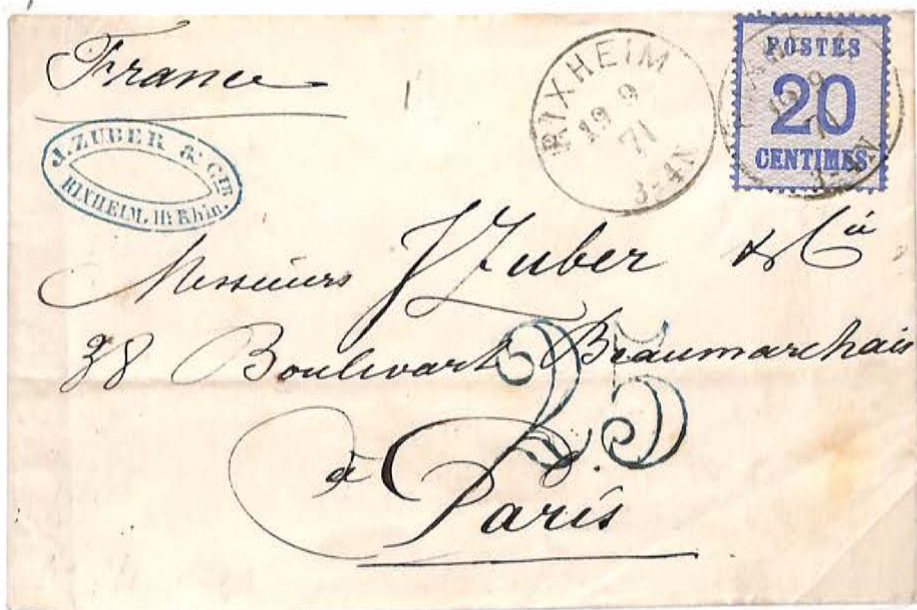 France
J. ZUBER & CIE
RIXHEIM, Ht Rhin.
RIXHEIM
19 9
71
3-4N
POSTES
20
CENTIMES
19 9
71
3-4N
Messieurs J Zuber & Cie
38 Boulevart Beaumarchais
25
à Paris